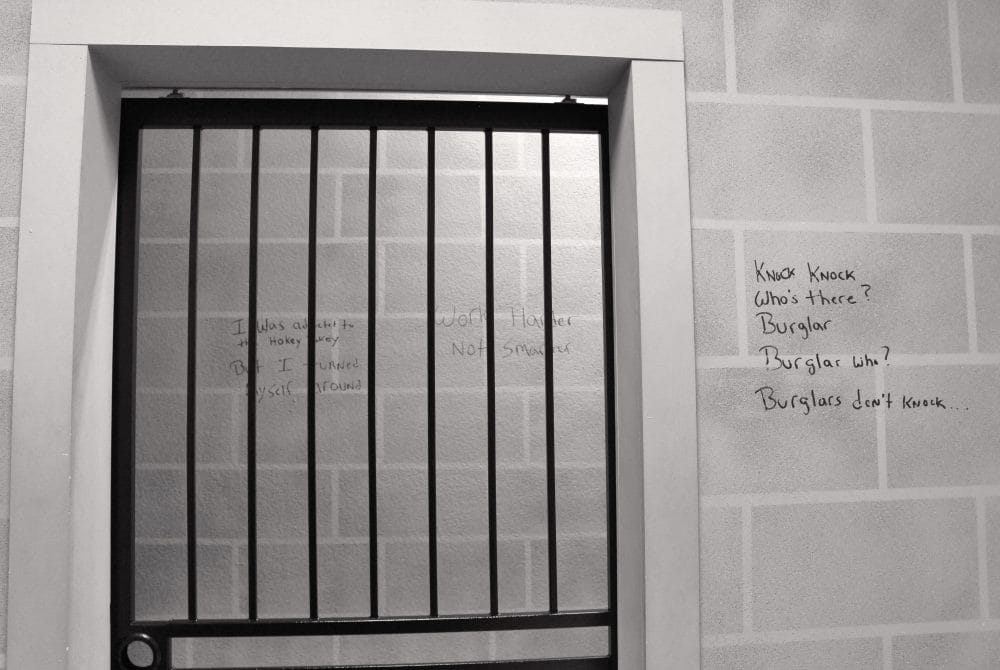 I was addicted to
the Hokey Pokey
But I turned
myself around
Work Harder
Not Smarter
Knock Knock
Who's there?
Burglar
Burglar who?
Burglars don't knock...